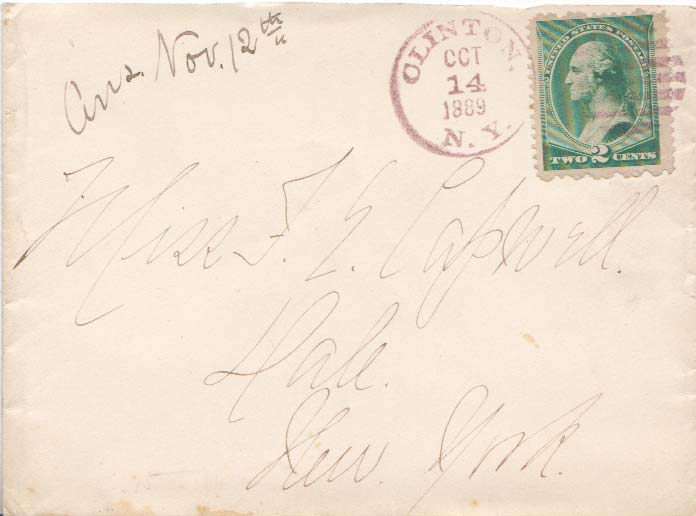 Ans. Nov. 12th
CLINTON,
OCT
14
1889
N.Y.
UNITED STATES POSTAGE
TWO 2 CENTS
Miss F. E. Capwell.
Dale.
New York.